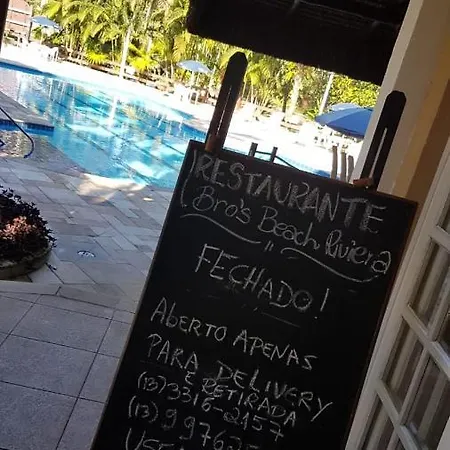 RESTAURANTE
Bro's Beach Riviera
FECHADO!
ABERTO APENAS
PARA DELIVERY
E RETIRADA
(13) 3316-2157
(13)